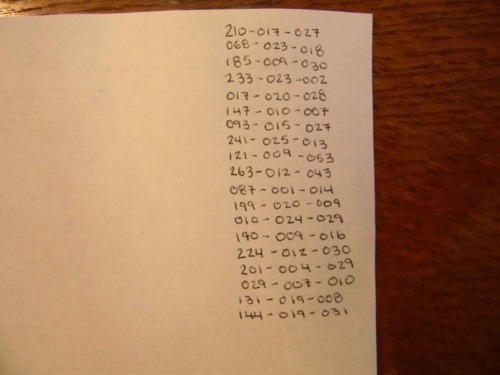 210-017-027
068-023-018
185-009-030
233-023-002
017-020-028
147-010-007
093-015-027
241-025-013
121-009-053
263-012-043
087-001-014
199-020-009
010-024-029
190-009-016
224-012-030
201-004-029
029-007-010
131-019-008
144-019-031